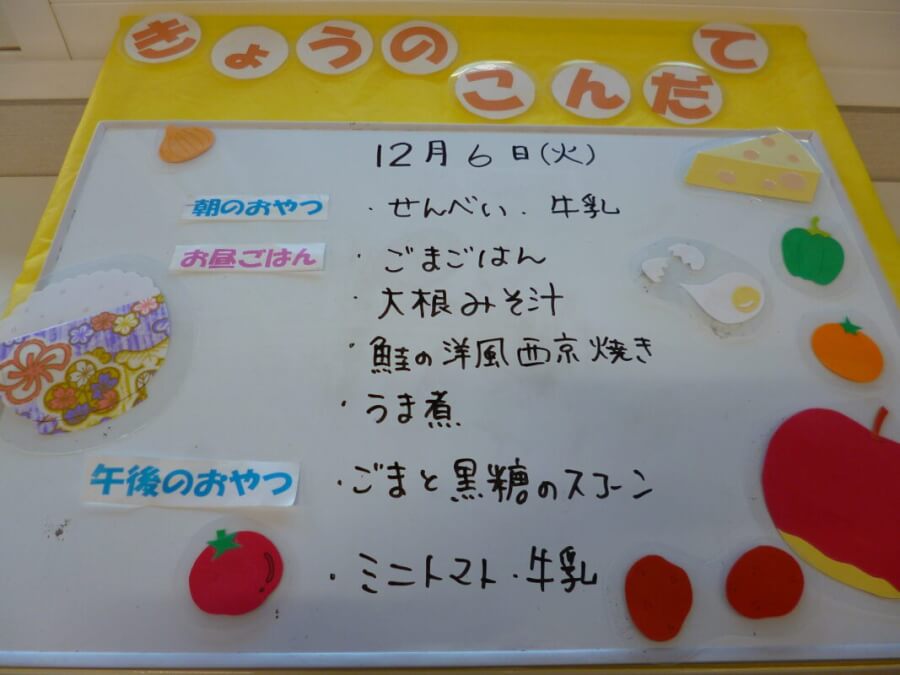 きょうの
こんだて
12月6日(火)
朝のおやつ ・せんべい・牛乳
お昼ごはん ・ごまごはん
・大根みそ汁
・鮭の洋風西京焼き
・うま煮
午後のおやつ ・ごまと黒糖のスコーン
・ミニトマト・牛乳